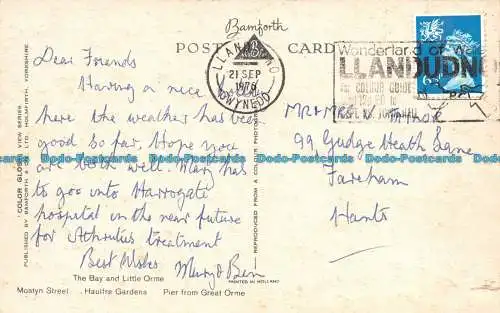 Bamforth
POST CARD
LLANDUDNO
21 SEP
1978
GWYNEDD
Wonderland of Wales
LLANDUDNO
COLOUR GUIDE
Dear Friends
Having a nice
here the weather has been
good so far. Hope you
are both well. Mary has
to go into Harrogate
hospital in the near future
for Athritus treatment
Best Wishes
Mary & Ben
MR & MRS
99 Gudge Heath Lane
Fareham
Hants
"COLOR GLOSS" VIEW SERIES
PUBLISHED BY BAMFORTH & CO. LTD. HOLMFIRTH, YORKSHIRE.
REPRODUCED FROM A COLOUR PHOTOGRAPH
The Bay and Little Orme
PRINTED IN HOLLAND
Mostyn Street Haulfre Gardens Pier from Great Orme
Dodo-Postcards Dodo-Postcards Dodo-Postcards Dodo-Postcards